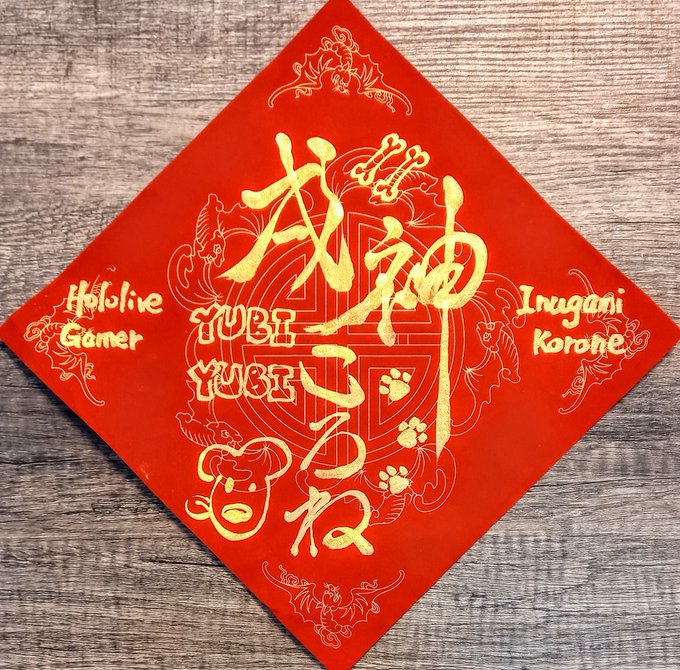 戌神
ころね
Hololive
Gamer
YUBI
YUBI
Inugami
Korone